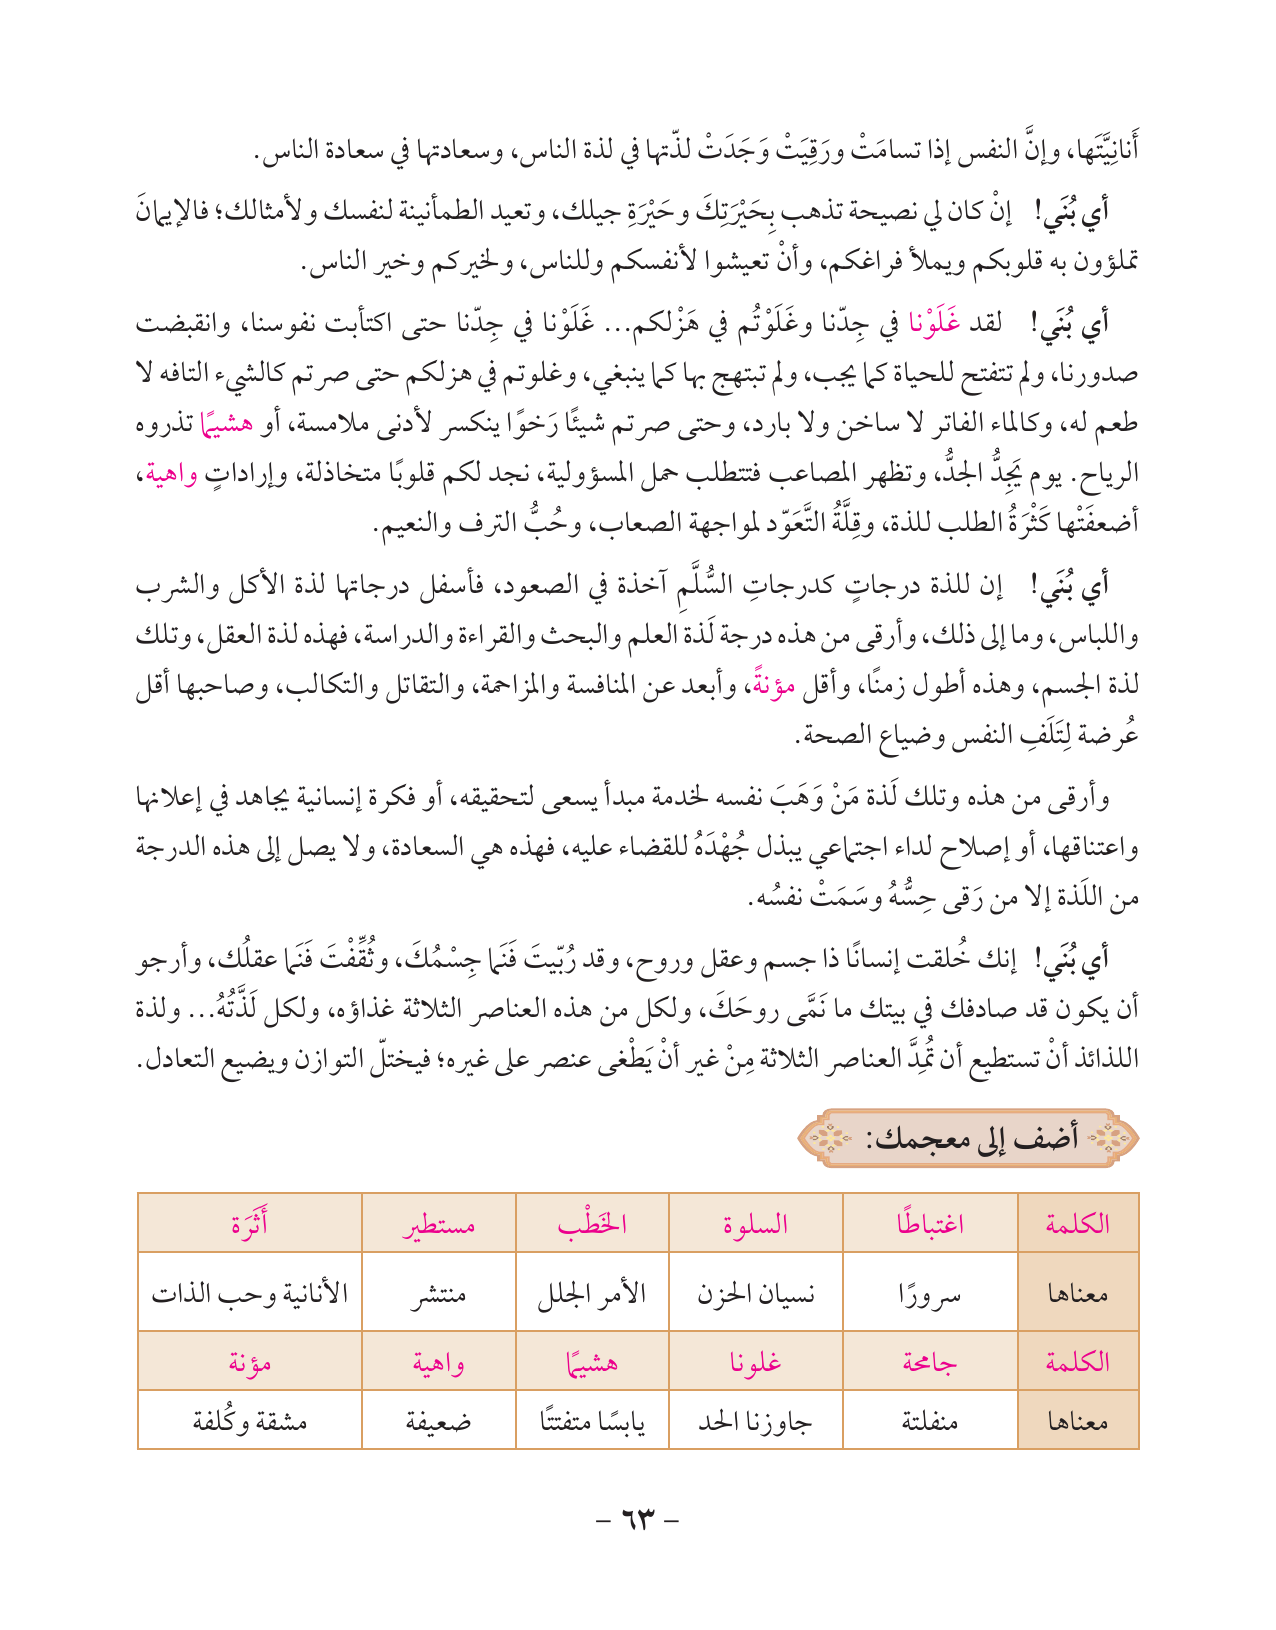 أَنانِيَّتَها، وإنَّ النفس إذا تسامَتْ ورَقِيَتْ وَجَدَتْ لذّتها في لذة الناس، وسعادتها في سعادة الناس.
أي بُنَي! إنْ كان لي نصيحة تذهب بِحَيْرَتِكَ وحَيْرَةِ جيلك، وتعيد الطمأنينة لنفسك ولأمثالك؛ فالإيمانَ
تملؤون به قلوبكم ويملأ فراغكم، وأنْ تعيشوا لأنفسكم وللناس، ولخيركم وخير الناس.
أي بُنَي! لقد غَلَوْنا في جِدّنا وغَلَوْتُم في هَزْلكم... غَلَوْنا في جِدّنا حتى اكتأبت نفوسنا، وانقبضت
صدورنا، ولم تتفتح للحياة كما يجب، ولم تبتهج بها كما ينبغي، وغلوتم في هزلكم حتى صرتم كالشيء التافه لا
طعم له، وكالماء الفاتر لا ساخن ولا بارد، وحتى صرتم شيئًا رَخوًا ينكسر لأدنى ملامسة، أو هشيمًا تذروه
الرياح. يوم يَجِدُّ الجدُّ، وتظهر المصاعب فتتطلب حمل المسؤولية، نجد لكم قلوبًا متخاذلة، وإراداتٍ واهية،
أضعفَتْها كَثْرَةُ الطلب للذة، وقِلَّةُ التَّعَوّد لمواجهة الصعاب، وحُبُّ الترف والنعيم.
أي بُنَي! إن للذة درجاتٍ كدرجاتِ السُّلَّمِ آخذة في الصعود، فأسفل درجاتها لذة الأكل والشرب
واللباس، وما إلى ذلك، وأرقى من هذه درجة لَذة العلم والبحث والقراءة والدراسة، فهذه لذة العقل، وتلك
لذة الجسم، وهذه أطول زمنًا، وأقل مؤنةً، وأبعد عن المنافسة والمزاحمة، والتقاتل والتكالب، وصاحبها أقل
عُرضة لِتَلَفِ النفس وضياع الصحة.
وأرقى من هذه وتلك لَذة مَنْ وَهَبَ نفسه لخدمة مبدأ يسعى لتحقيقه، أو فكرة إنسانية يجاهد في إعلانها
واعتناقها، أو إصلاح لداء اجتماعي يبذل جُهْدَهُ للقضاء عليه، فهذه هي السعادة، ولا يصل إلى هذه الدرجة
من اللَذة إلا من رَقى حِسُّهُ وسَمَتْ نفسُه.
أي بُنَي! إنك خُلقت إنسانًا ذا جسم وعقل وروح، وقد رُبّيتَ فَنَما جِسْمُكَ، وثُقِّفْتَ فَنَما عقلُك، وأرجو
أن يكون قد صادفك في بيتك ما نَمَّى روحَكَ، ولكل من هذه العناصر الثلاثة غذاؤه، ولكل لَذَّتُهُ... ولذة
اللذائذ أنْ تستطيع أن تُمِدَّ العناصر الثلاثة مِنْ غير أنْ يَطْغى عنصر على غيره؛ فيختلّ التوازن ويضيع التعادل.
أضف إلى معجمك:
الكلمة اغتباطًا السلوة الخَطْب مستطير أَثَرَة
معناها سرورًا نسيان الحزن الأمر الجلل منتشر الأنانية وحب الذات
الكلمة جامحة غلونا هشيمًا واهية مؤنة
معناها منفلتة جاوزنا الحد يابسًا متفتتًا ضعيفة مشقة وكُلفة
- ٦٣ -